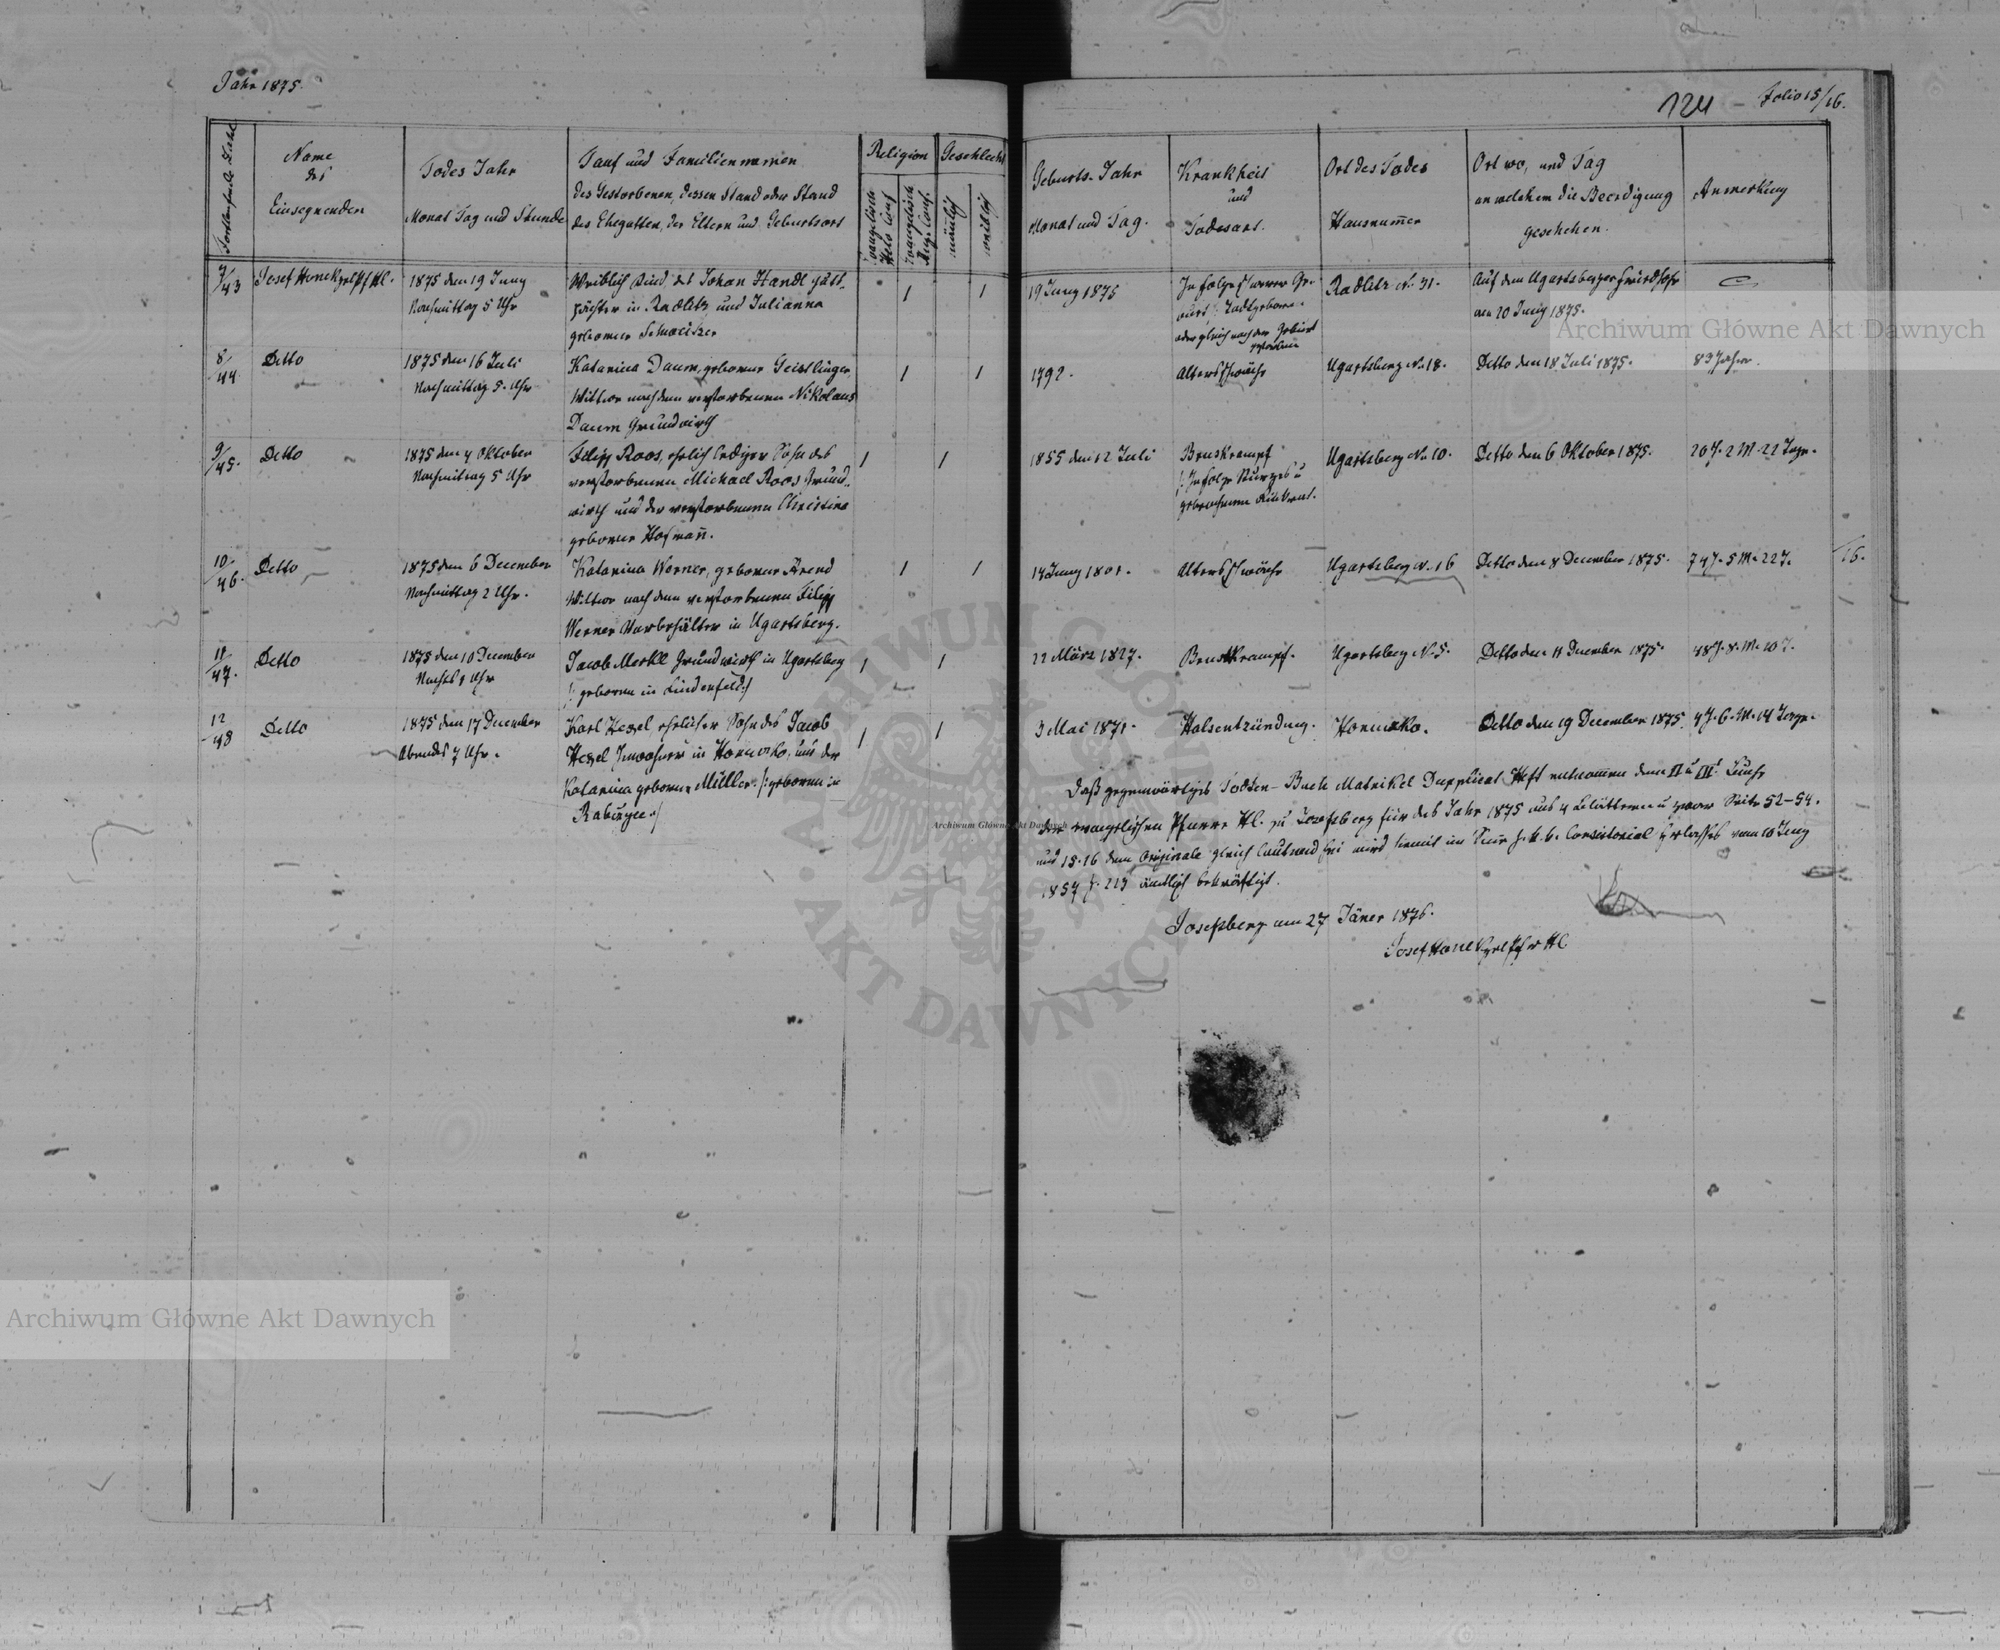 Jahr 1875.
124 - Folio 15/16.
Fortlaufende Zahl
Name
des
Einsegnenden
Todes Jahr
Monat Tag und Stunde
Tauf und Familiennamen
des Gestorbenen, dessen Stand oder Stand
des Ehegatten, der Eltern und Geburtsort
Religion
Evangelisch Helv. Conf
Evangelisch Augs. Conf.
Geschlecht
mänlich
weiblich
Geburts-Jahr
Monat und Tag.
Krankheit
und
Todesart.
Ort des Todes
Hausnum̅er
Ort wo, und Tag
an welchem die Beerdigung
geschehen.
Anmerkung
7/43
Josef
1875 den 19 Juny
Nachmittag 5 Uhr
Weiblich Kind, des Johan Handl
pächter in Radlitz und Julianna
geborner Schweitzer
1
1
19 Juny 1875
In folge schwerer Ge-
burt /: Todtgeboren
oder gleich nach der Geburt
gestorben
Radlitz No. 31.
Auf dem Ugartsberger Friedhofe
den 20 Juny 1875.
8/44
Detto
1875 den 16 Juli
Nachmittag 5. Uhr
Katarina Daum, geborner Geistlinger
Wittwe nach dem verstorbenen Nikolaus
Daum Grundwirth
1
1
1792.
Altersschwäche
Ugartsberg No. 18.
Detto den 18 Juli 1875.
83 Jahre.
9/45.
Detto
1875 den 4 Oktober
Nachmittag 5 Uhr
Filipp Roos, ehelich lediger Sohn des
verstorbenen Michael Roos Grund-
wirth und der verstorbenen Christina
geborner Hofman̅.
1
1
1855 den 12 Juli
Bruskrampf
/: In folge Sturzes u
gebrochenen Rükkrat.
Ugartsberg No. 10.
Detto den 6 Oktober 1875.
20 J. 2 M. 22 Tage.
10/46.
Detto
1875 den 6 December
Nachmittag 2 Uhr.
Katarina Werner, geborner Arend
Wittwe nach dem verstorbenen Filipp
Werner in Ugartsberg.
1
1
14 Juny 1801.
Altersschwäche
Ugartsberg N. 16
Detto den 8 December 1875.
74 J. 5 M. 22 T.
/16.
11/47.
Detto
1875 den 10 December
Nachts 1 Uhr
Jacob Merkl Grundwirth in Ugartsberg
/: geboren in Lindenfeld :/
1
1
22 März 1827.
Brustkrampf.
Ugartsberg N. 5.
Detto den 11 December 1875.
48 J. 8. M. 10 T.
12/48
Detto
1875 den 17 December
Abends 7 Uhr.
Karl Hexel ehelicher Sohn des Jacob
Hexel Inwohner in Horucko, und der
Katarina geborner Müller. /: geboren in
1
1
3 Mai 1871.
Halsentzündung.
Horucko.
Detto den 19 December 1875.
4 J. 6. M. 14 Tage.
Daß gegenwärtiges Todten-Buch Matrikel Dupplicat Heft entnom̅en dem II u III
der evangelischen Pfarre HC. zu Josefsberg für das Jahr 1875 aus 4 Blättern u zwar Seite 52-54.
und 15.16 dem Originale gleich lautend sei wird hiemit im Consistorial Erlasses vom 10 Juny
1857 Z. 213 amtlich bekräftigt.
Josefsberg am 27 Jäner 1876.
Josef
Archiwum Główne Akt Dawnych
Archiwum Główne Akt Dawnych
Archiwum Główne Akt Dawnych
ARCHIWUM GŁÓWNE
AKT DAWNYCH